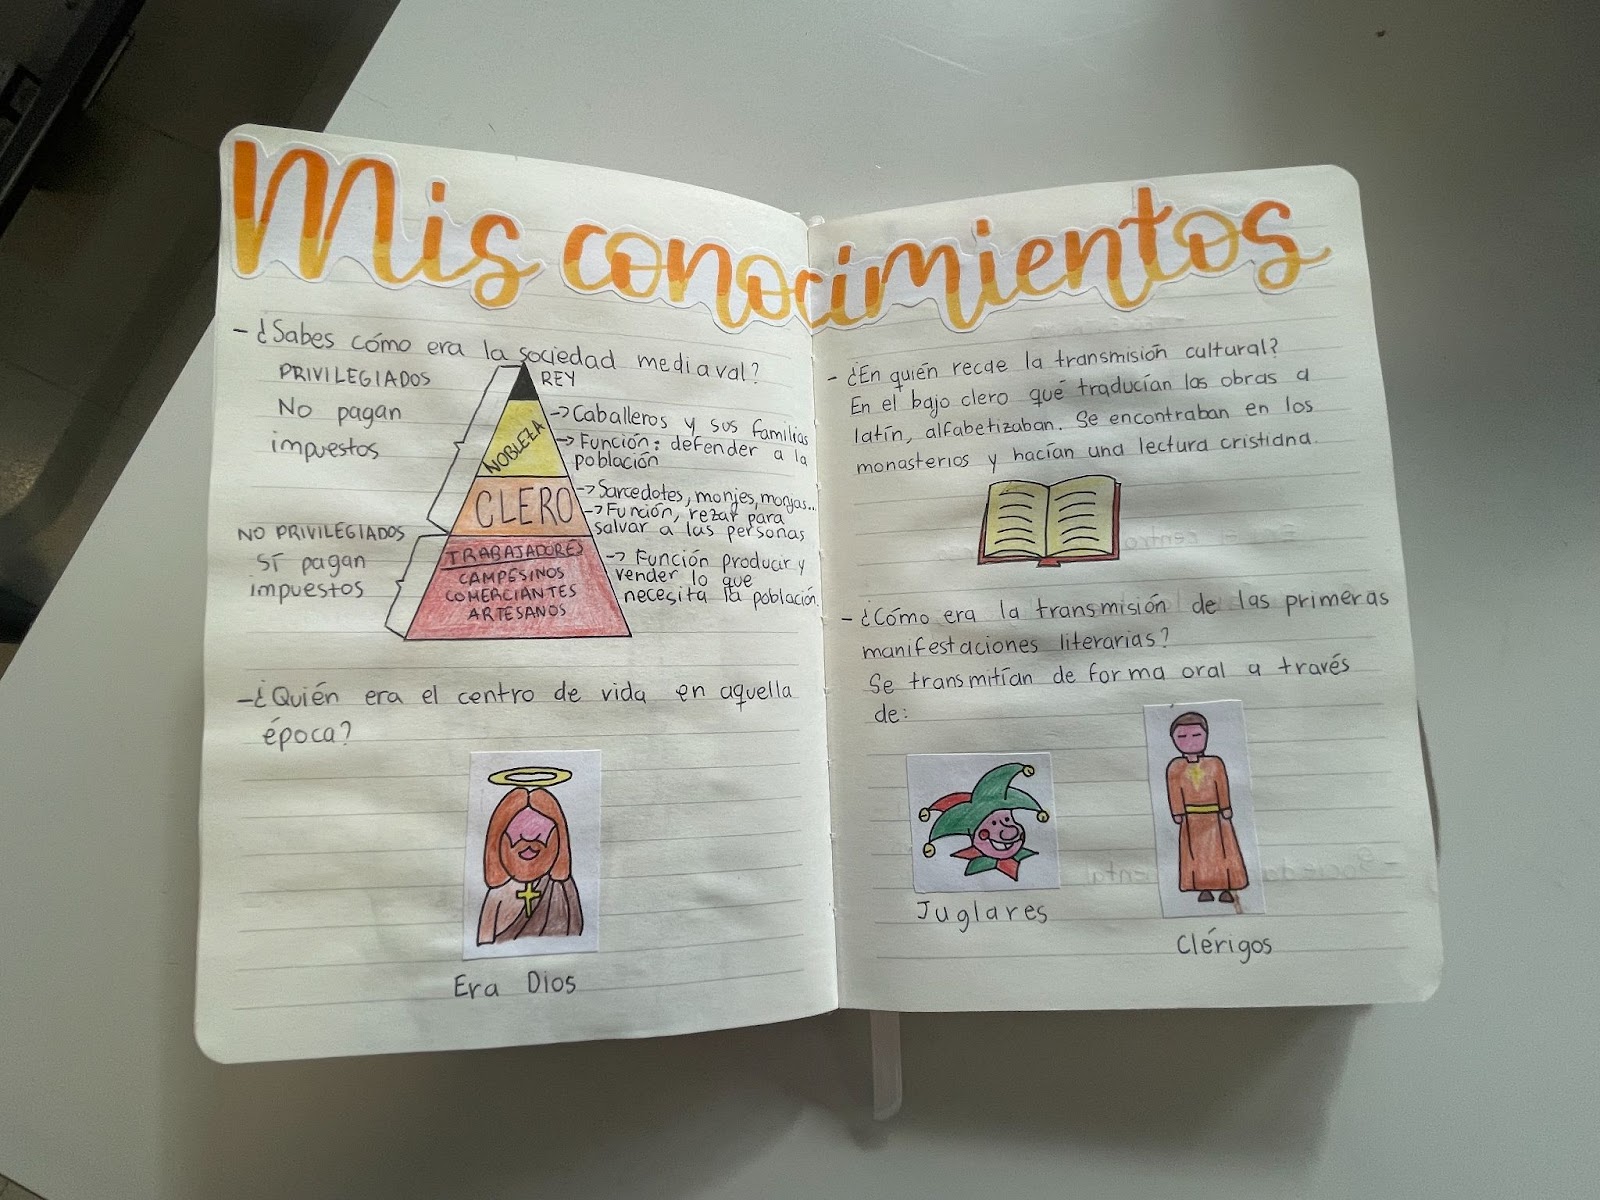 Mis conocimientos
- ¿Sabes cómo era la sociedad mediaval?
PRIVILEGIADOS
No pagan
impuestos
NO PRIVILEGIADOS
SÍ pagan
impuestos
REY
NOBLEZA
-> Caballeros y sus familias
-> Función: defender a la
población
CLERO
-> Sarcedotes, monjes, monjas...
-> Función, rezar para
salvar a las personas
TRABAJADORES
CAMPESINOS
COMERCIANTES
ARTESANOS
-> Función producir y
vender lo que
necesita la población.
- ¿Quién era el centro de vida en aquella
época?
Era Dios
- ¿En quién recae la transmisión cultural?
En el bajo clero qué traducían las obras a
latín, alfabetizaban. Se encontraban en los
monasterios y hacían una lectura cristiana.
- ¿Cómo era la transmisión de las primeras
manifestaciones literarias?
Se transmitían de forma oral a través
de:
Juglares
Clérigos